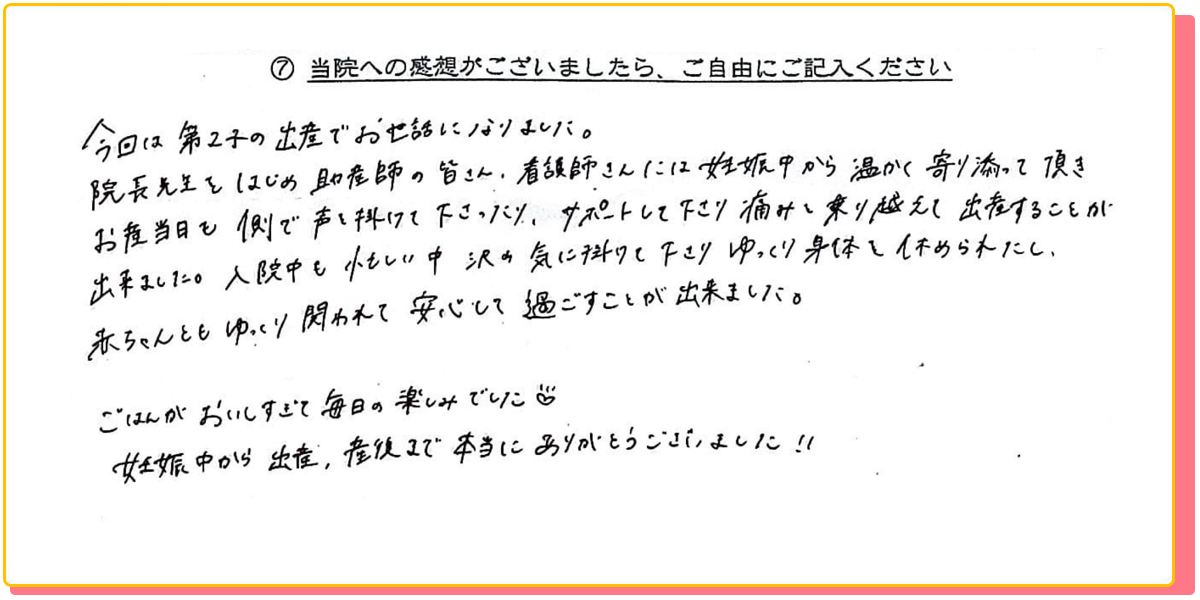 ⑦ 当院への感想がございましたら、ご自由にご記入ください
今回は 第2子の出産でお世話になりました。
院長先生をはじめ 助産師の皆さん、看護師さんには妊娠中から 温かく寄り添って頂き
お産当日も 側で声を掛けて下さったり、サポートして下さり 痛みを乗り越えて 出産することが
出来ました。入院中も 忙しい中 沢山気に掛けて下さり ゆっくり身体を休められたし、
赤ちゃんとも ゆっくり関われて 安心して 過ごすことが出来ました。
ごはんが おいしすぎて毎日の楽しみでした
妊娠中から 出産、産後まで 本当にありがとうございました!!